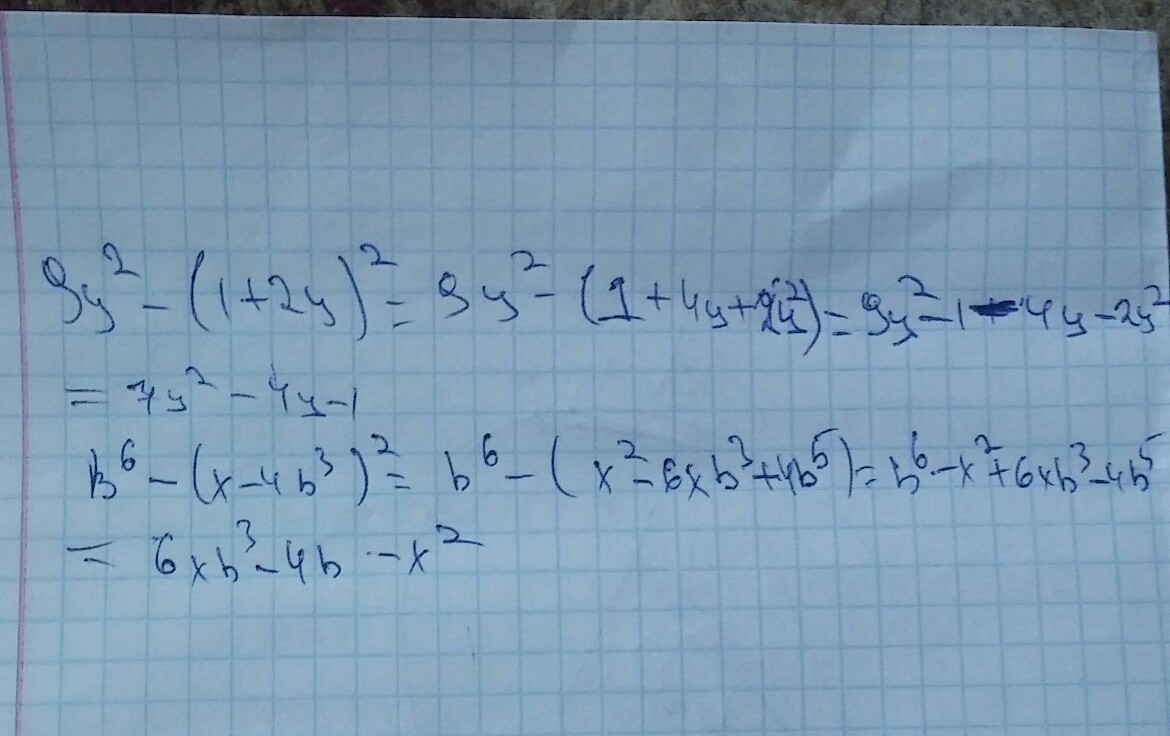 9y² - (1+2y)² = 9y² - (1+4y+2y²) = 9y² - 1 - 4y - 2y²
= 7y² - 4y - 1
b⁶ - (x-4b³)² = b⁶ - (x² - 6xb³ + 4b⁵) = b⁶ - x² + 6xb³ - 4b⁵
= 6xb³ - 4b - x²